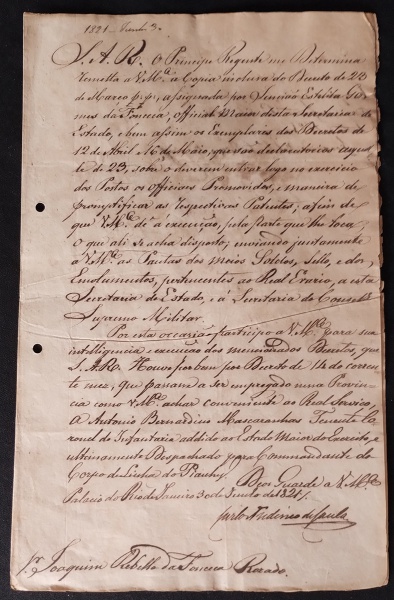 1821 - Junho 3.
S. A. R. O Principe Regente me Determina
remetta a VM.ce a Copia inclusa do Decreto de 23
de Março p.p., assignada por Simeão Estelita Go-
mes da Fonseca, Official Maior desta Secretaria de
Estado, e bem assim os Exemplares dos Decretos de
12 de Abril de Maio, que são declaratorios aquel-
le de 23, sobre o deverem entrar logo no exercicio
dos Postos os Officiaes Promovidos, e maneira de
promptificar as respectivas Patentes; afim de
que VM.ce dê á execução, pela parte que lhe toca,
o que ali se acha disposto; enviando juntamente
a VM.ce as Pautas dos meios Soldos, Sello, e dos
Emolumentos, pertencentes ao Real Erario, a esta
Secretaria de Estado, e á Secretaria do Conselho
Supremo Militar.
Por esta occasião participo a VM.ce para sua
intelligencia e execução dos mencionados Decretos, que
S. A. R. Houve por bem por Decreto de 14 do corren-
te mez, que passam a ser empregado n'uma Provin-
cia como VM.ce achar conveniente ao Real Serviço,
a Antonio Bernardino Mascaranhas Tenente Co-
ronel de Infantaria addido ao Estado Maior do Exercito, e
ultimamente Despachado para Commandante do
Corpo de Linha do Piauhy.
Deos Guarde a VM.ce
Palacio do Rio de Janeiro 30 de Junho de 1821
Carlos Frederico de Paula
Sr. Joaquim Rebello da Fonseca Rosado.